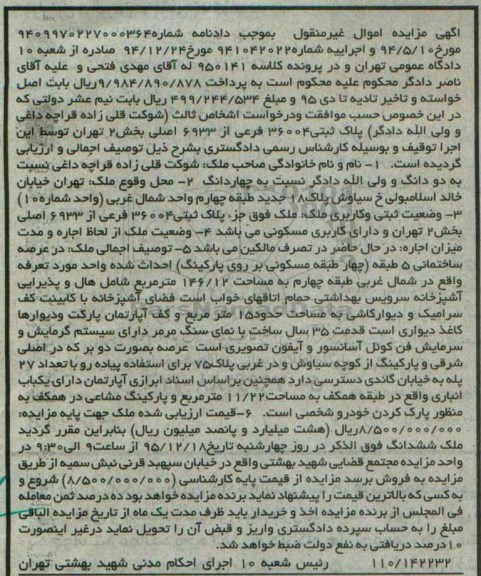 آگهی مزایده اموال غیرمنقول بموجب دادنامه شماره۹۴۰۹۹۷۰۲۲۷۰۰۰۳۶۴
مورخ۹۴/۵/۱۰ و اجراییه شماره۹۴۱۰۴۲۰۲۲ مورخ۹۴/۱۲/۲۴ صادره از شعبه ۱۰
دادگاه عمومی تهران و در پرونده کلاسه ۹۵۰۱۴۱ له آقای مهدی فتحی و علیه آقای
ناصر دادگر محکوم علیه محکوم است به پرداخت ۹/۹۸۴/۸۹۰/۸۷۸ریال بابت اصل
خواسته و تاخیر تادیه تا دی ۹۵ و مبلغ ۴۹۹/۲۴۴/۵۳۴ ریال بابت نیم عشر دولتی که
در این خصوص حسب موافقت ودرخواست اشخاص ثالث (شوکت قلی زاده قراچه داغی
و ولی الله دادگر) پلاک ثبتی۳۶۰۰۴ فرعی از ۶۹۳۳ اصلی بخش۲ تهران توسط این
اجرا توقیف و بوسیله کارشناس رسمی دادگستری بشرح ذیل توصیف اجمالی و ارزیابی
گردیده است. ۱- نام و نام خانوادگی صاحب ملک: شوکت قلی زاده قراچه داغی نسبت
به دو دانگ و ولی الله دادگر نسبت به چهاردانگ ۲- محل وقوع ملک: تهران خیابان
خالد اسلامبولی خ سیاوش پلاک۱۸ جدید طبقه چهارم واحد شمال غربی (واحد شماره۱۰)
۳- وضعیت ثبتی وکاربری ملک: ملک فوق جزء پلاک ثبتی۳۶۰۰۴ فرعی از ۶۹۳۳ اصلی
بخش۲ تهران و دارای کاربری مسکونی می باشد ۴- وضعیت ملک از لحاظ اجاره و مدت
میزان اجاره: در حال حاضر در تصرف مالکین می باشد ۵- توصیف اجمالی ملک: در عرصه
ساختمانی ۵ طبقه (چهار طبقه مسکونی بر روی پارکینگ) احداث شده واحد مورد تعرفه
واقع در شمال غربی طبقه چهارم به مساحت ۱۴۶/۱۲ مترمربع شامل هال و پذیرایی
آشپزخانه سرویس بهداشتی حمام اتاقهای خواب است فضای آشپزخانه با کابینت کف
سرامیک و دیوارکاشی به مساحت حدود۱۵ متر مربع و کف آپارتمان پارکت ودیوارها
کاغذ دیواری است قدمت ۳۵ سال ساخت با نمای سنگ مرمر دارای سیستم گرمایش و
سرمایش فن کوئل آسانسور و آیفون تصویری است عرصه بصورت دو بر که در اصلی
شرقی و پارکینگ از کوچه سیاوش و در غربی پلاک۷۵ برای استفاده پیاده رو با تعداد ۲۷
پله به خیابان گاندی دسترسی دارد همچنین براساس اسناد ابرازی آپارتمان دارای یکباب
انباری واقع در طبقه همکف به مساحت۱۱/۲۲ مترمربع و پارکینگ مشاعی در همکف به
منظور پارک کردن خودرو شخصی است. ۶-قیمت ارزیابی شده ملک جهت پایه مزایده:
۸/۵۰۰/۰۰۰/۰۰۰ریال (هشت میلیارد و پانصد میلیون ریال) بنابراین مقرر گردید
ملک ششدانگ فوق الذکر در روز چهارشنبه تاریخ۹۵/۱۲/۱۸ از ساعت۹ الی۹:۳۰ در
واحد مزایده مجتمع قضایی شهید بهشتی واقع در خیابان سپهبد قرنی نبش سمیه از طریق
مزایده به فروش برسد مزایده از قیمت پایه کارشناسی (۸/۵۰۰/۰۰۰/۰۰۰) شروع و
به کسی که بالاترین قیمت را پیشنهاد نماید برنده مزایده خواهد بود ده درصد ثمن معامله
فی المجلس از برنده مزایده اخذ و خریدار باید ظرف مدت یک ماه از تاریخ مزایده الباقی
مبلغ را به حساب سپرده دادگستری واریز و قبض آن را تحویل نماید درغیر اینصورت
۱۰درصد دریافتی به نفع دولت ضبط خواهد شد.
۱۱۰/۱۴۲۲۳۲ رئیس شعبه ۱۰ اجرای احکام مدنی شهید بهشتی تهران